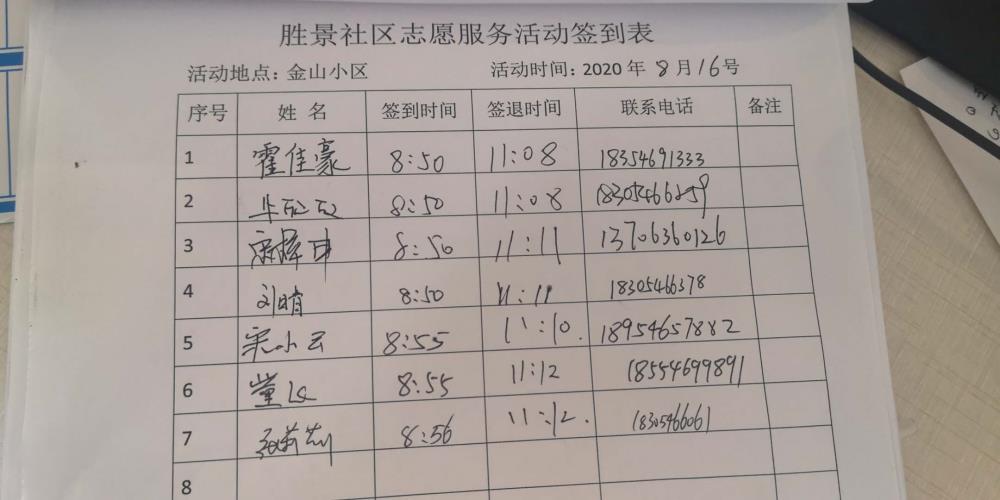 胜景社区志愿服务活动签到表
活动地点：金山小区 活动时间：2020 年 8 月 16 号
序号 姓 名 签到时间 签退时间 联系电话 备注
1 霍佳豪 8:50 11:08 18354691333
2 8:50 11:08 18305466259
3 8:50 11:11 13706360126
4 刘晴 8:50 11:11 18305466378
5 宋小云 8:55 11:10. 18954657882
6 8:55 11:12 18554699891
7 8:56 11:12.
8